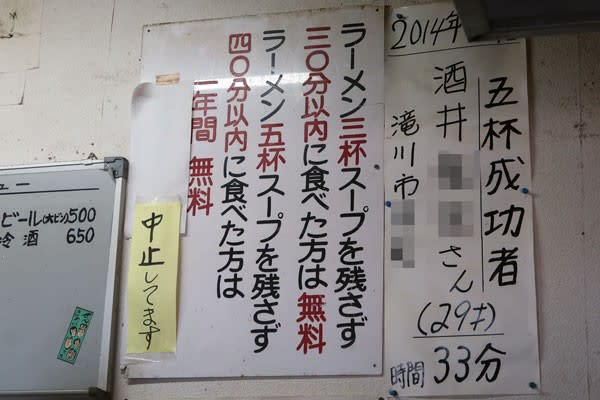 五杯成功者
2014年
酒井
さん
滝川市
(29才)
時間 33分
ラーメン三杯スープを残さず
三〇分以内に食べた方は無料
ラーメン五杯スープを残さず
四〇分以内に食べた方は
年間 無料
中止してます
ビール(大ビン)500
冷酒 650